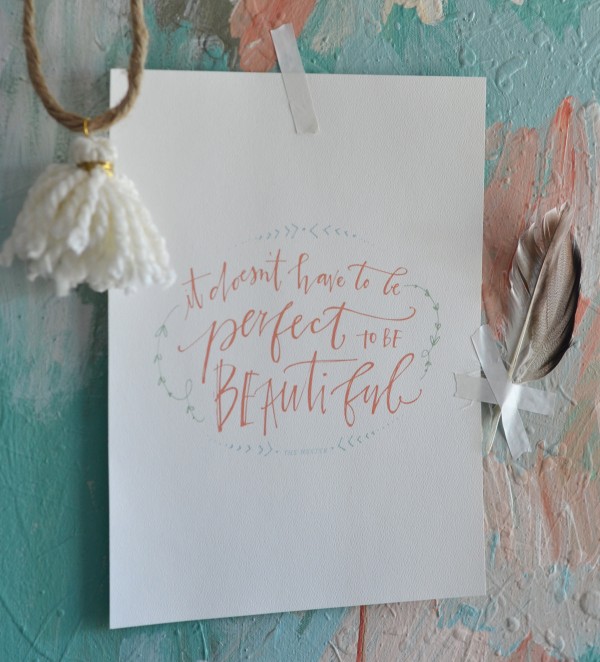 it doesn't have to be
perfect TO BE
BEAUtiful